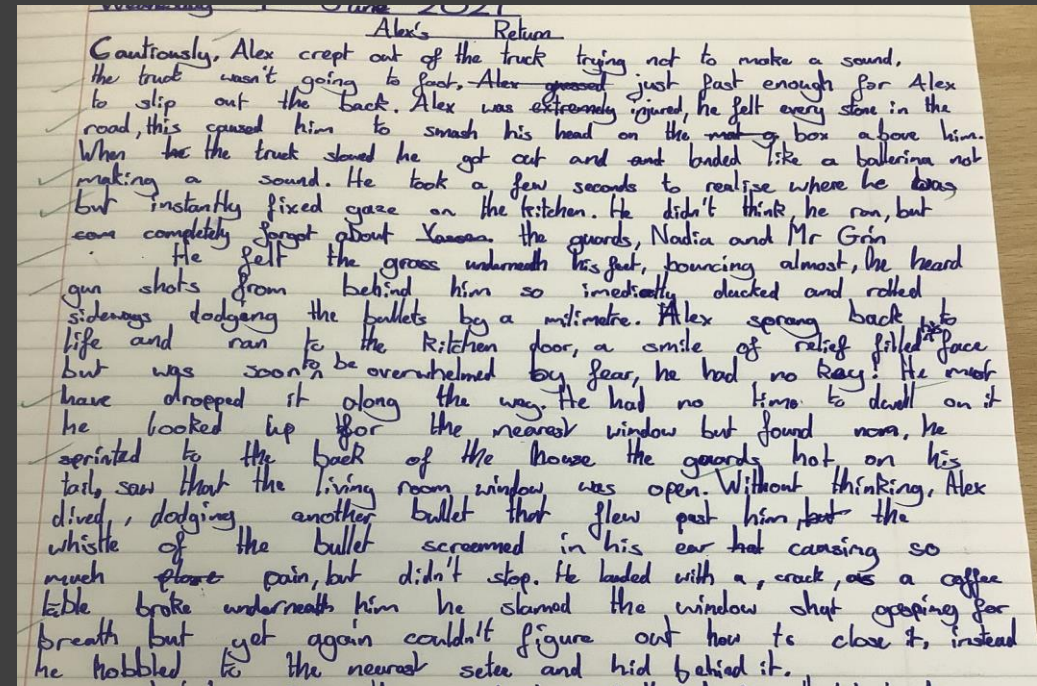 June 2021
Alex's Return
Cautiously, Alex crept out of the truck trying not to make a sound,
the truck wasn't going to fast, Alex guessed just fast enough for Alex
to slip out the back. Alex was extremely injured, he felt every stone in the
road, this caused him to smash his head on the box above him.
When the truck slowed he got out and and landed like a ballerina not
making a sound. He took a few seconds to realise where he was
but instantly fixed gaze on the kitchen. He didn't think, he ran, but
com completely forgot about Yassen. the guards, Nadia and Mr Grin
He felt the grass underneath his feet, bouncing almost, he heard
gun shots from behind him so imediatly ducked and rolled
sideways dodgeng the bullets by a milimetre. Alex sprang back to
life and ran to the kitchen door, a smile of relief filled his face
but was soon to be overwhelmed by fear, he had no key! He must
have dropped it along the way. He had no time to dwell on it
he looked up for the nearest window but found non, he
sprinted to the back of the house the guards hot on his
tail, saw that the living room window was open. Without thinking, Alex
dived, dodging another bullet that flew past him, but the
whistle of the bullet screemed in his ear hot causing so
much pain, but didn't stop. He landed with a, crack, as a coffee
table broke underneath him he slamed the window shut gasping for
breath but yet again couldn't figure out how to close it, instead
he hobbled to the nearest setee and hid behind it.